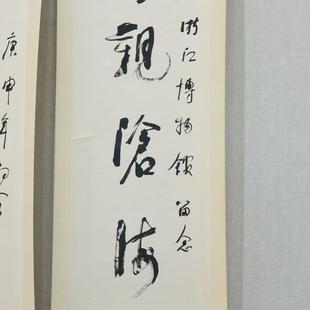 浙江博物館留念
觀滄海
庚申年